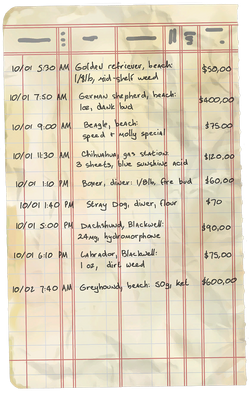 10/01 5:30 AM Golden retriever, beach: $50,00
1/8lb, mid-shelf weed
10/01 7:50 AM German shepherd, beach: $400,00
1oz, dank bud
10/01 9:00 AM Beagle, beach: $75.00
speed + molly special
10/01 11:30 AM Chihuahua, gas station $120.00
3 sheets, blue sunshine acid
10/01 1:10 PM Boxer, diner: 1/8lb, fire bud $60,00
10/01 1:40 PM Stray Dog, diner, flour $70
10/01 5:00 PM Dachshund, Blackwell: $90,00
24mg, hydromorphone
10/01 6:10 PM Labrador, Blackwell: $75,00
1 oz, dirt weed
10/02 7:40 AM Greyhound, beach: 50g, ket $600,00